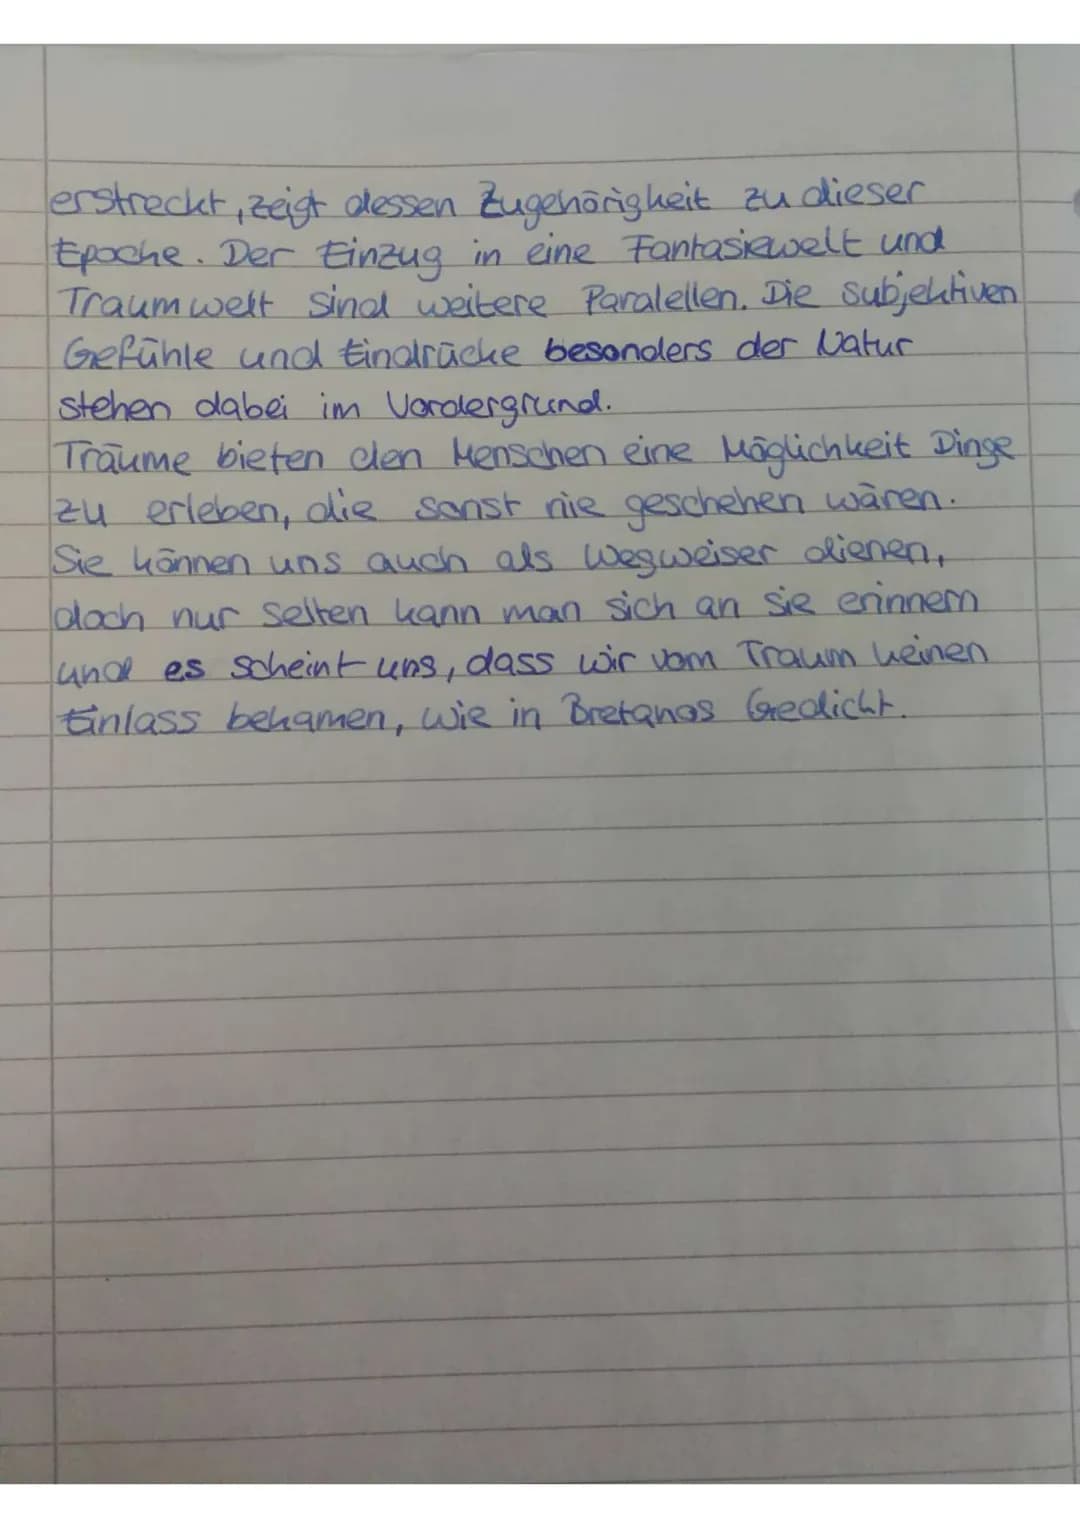 erstreckt, zeigt dessen Zugehörigkeit zu dieser
Epoche. Der Einzug in eine Fantasiewelt und
Traumwelt sind weitere Paralellen. Die subjektiven
Gefühle und Eindrücke besonders der Natur
stehen dabei im Vordergrund.
Träume bieten den Menschen eine Möglichkeit Dinge
zu erleben, die sonst nie geschehen wären.
Sie können uns auch als Wegweiser dienen,
doch nur selten kann man sich an sie erinnern
und es scheint uns, dass wir vom Traum keinen
Einlass bekamen, wie in Bretanos Gedicht.